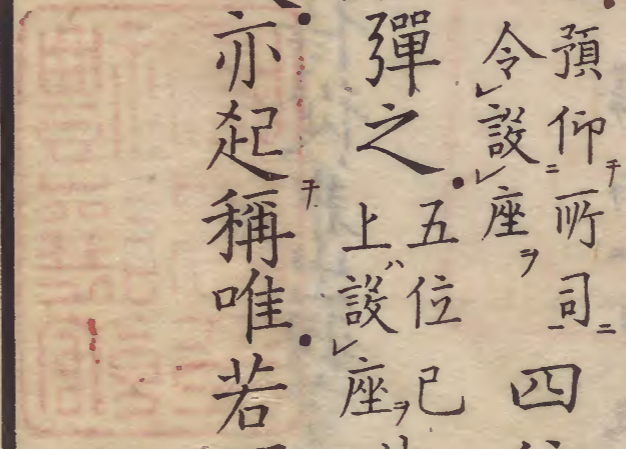 預仰所司
令設座
四
彈之
五位已
上設座
亦起稱唯若